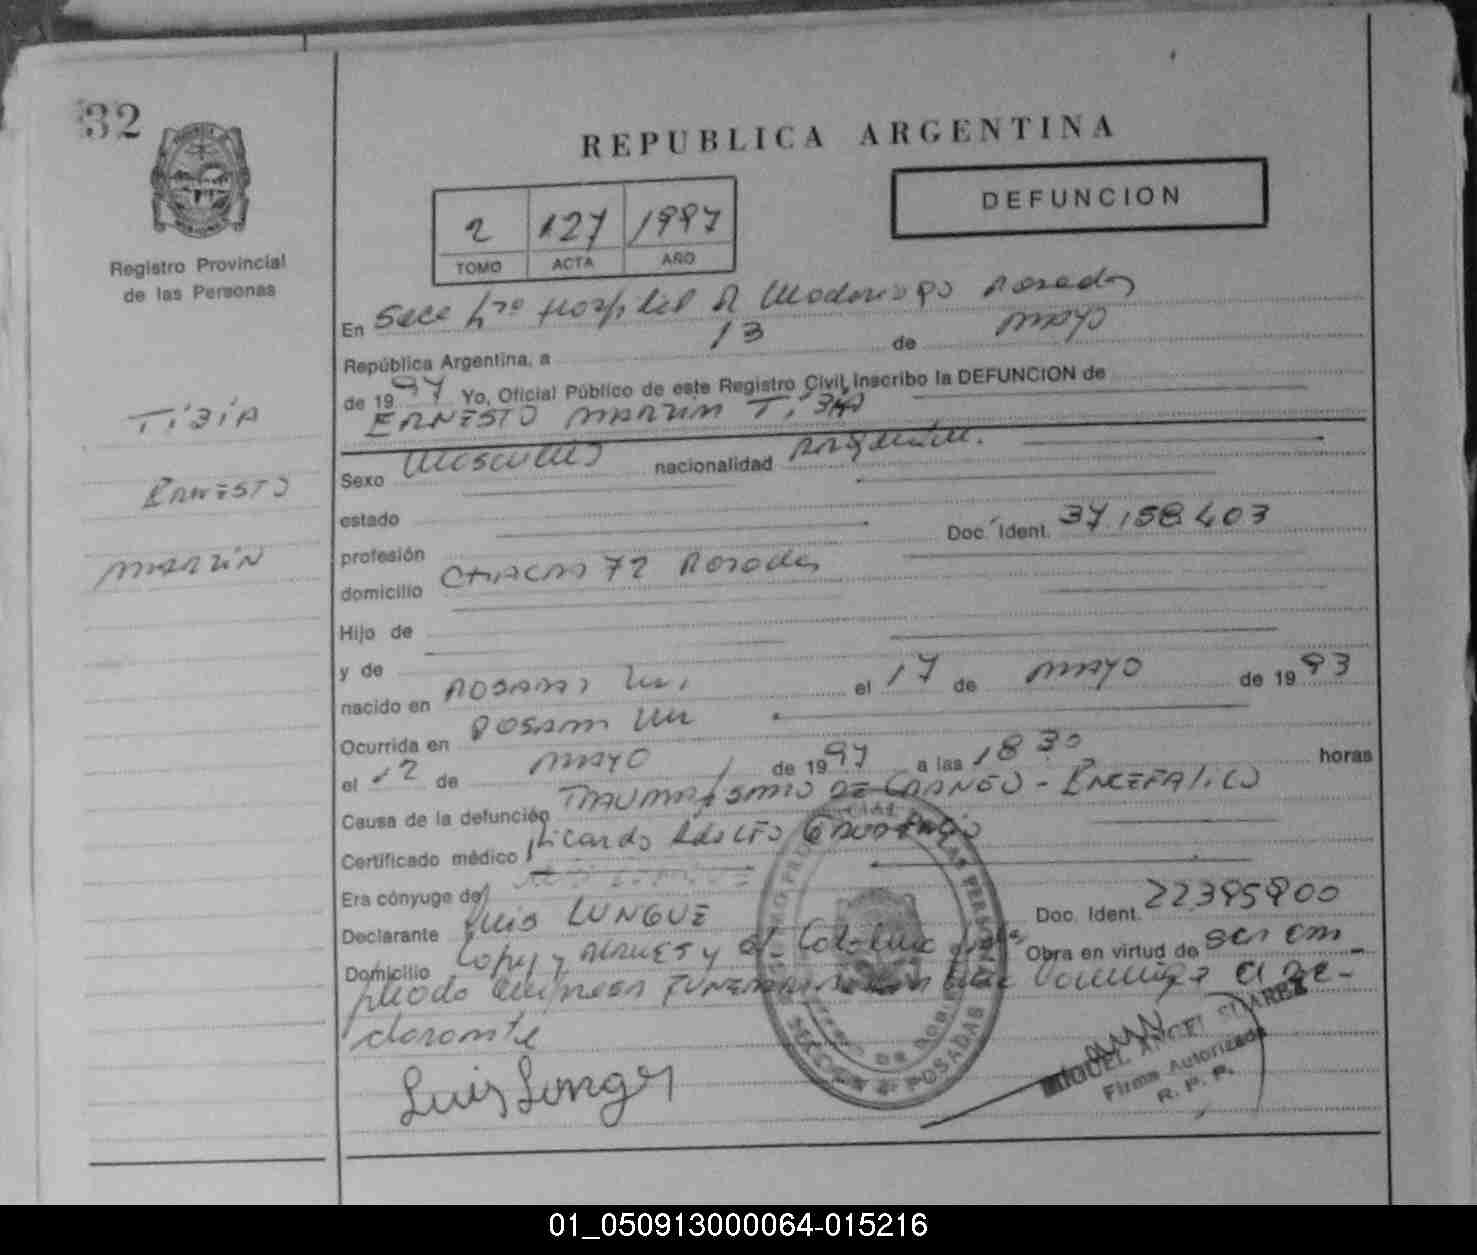 32
REPUBLICA ARGENTINA
DEFUNCION
2 127 1997
TOMO ACTA AÑO
Registro Provincial
de las Personas
En Secc Hospital R Madariaga Posadas
República Argentina, a 13 de mayo
de 1997 Yo, Oficial Público de este Registro Civil, Inscribo la DEFUNCION de
ERNESTO MARTIN TIBIA
TIBIA
ERNESTO
MARTIN
Sexo Masculino nacionalidad Argentina.
estado
profesión Doc. Ident. 37.158.403
domicilio CHACRA 72 Posadas
Hijo de
y de
nacido en POSADAS el 17 de MAYO de 1993
Ocurrida en POSADAS
el 12 de MAYO de 1997 a las 18 30 horas
Causa de la defunción TRAUMATISMO DE CRANEO - ENCEFALICO
Certificado médico Ricardo Adolfo
Era cónyuge de
Declarante Luis LUNGUE Doc. Ident. 22395900
Domicilio y Obra en virtud de ser em-
pleado empresa FUNERARIA el de-
clarante
Luis Longer
REGISTRO PROVINCIAL DE LAS PERSONAS
SECCION POSADAS
MIGUEL ANGEL SUAREZ
Firma Autorizada
R. P. P.
01_050913000064-015216